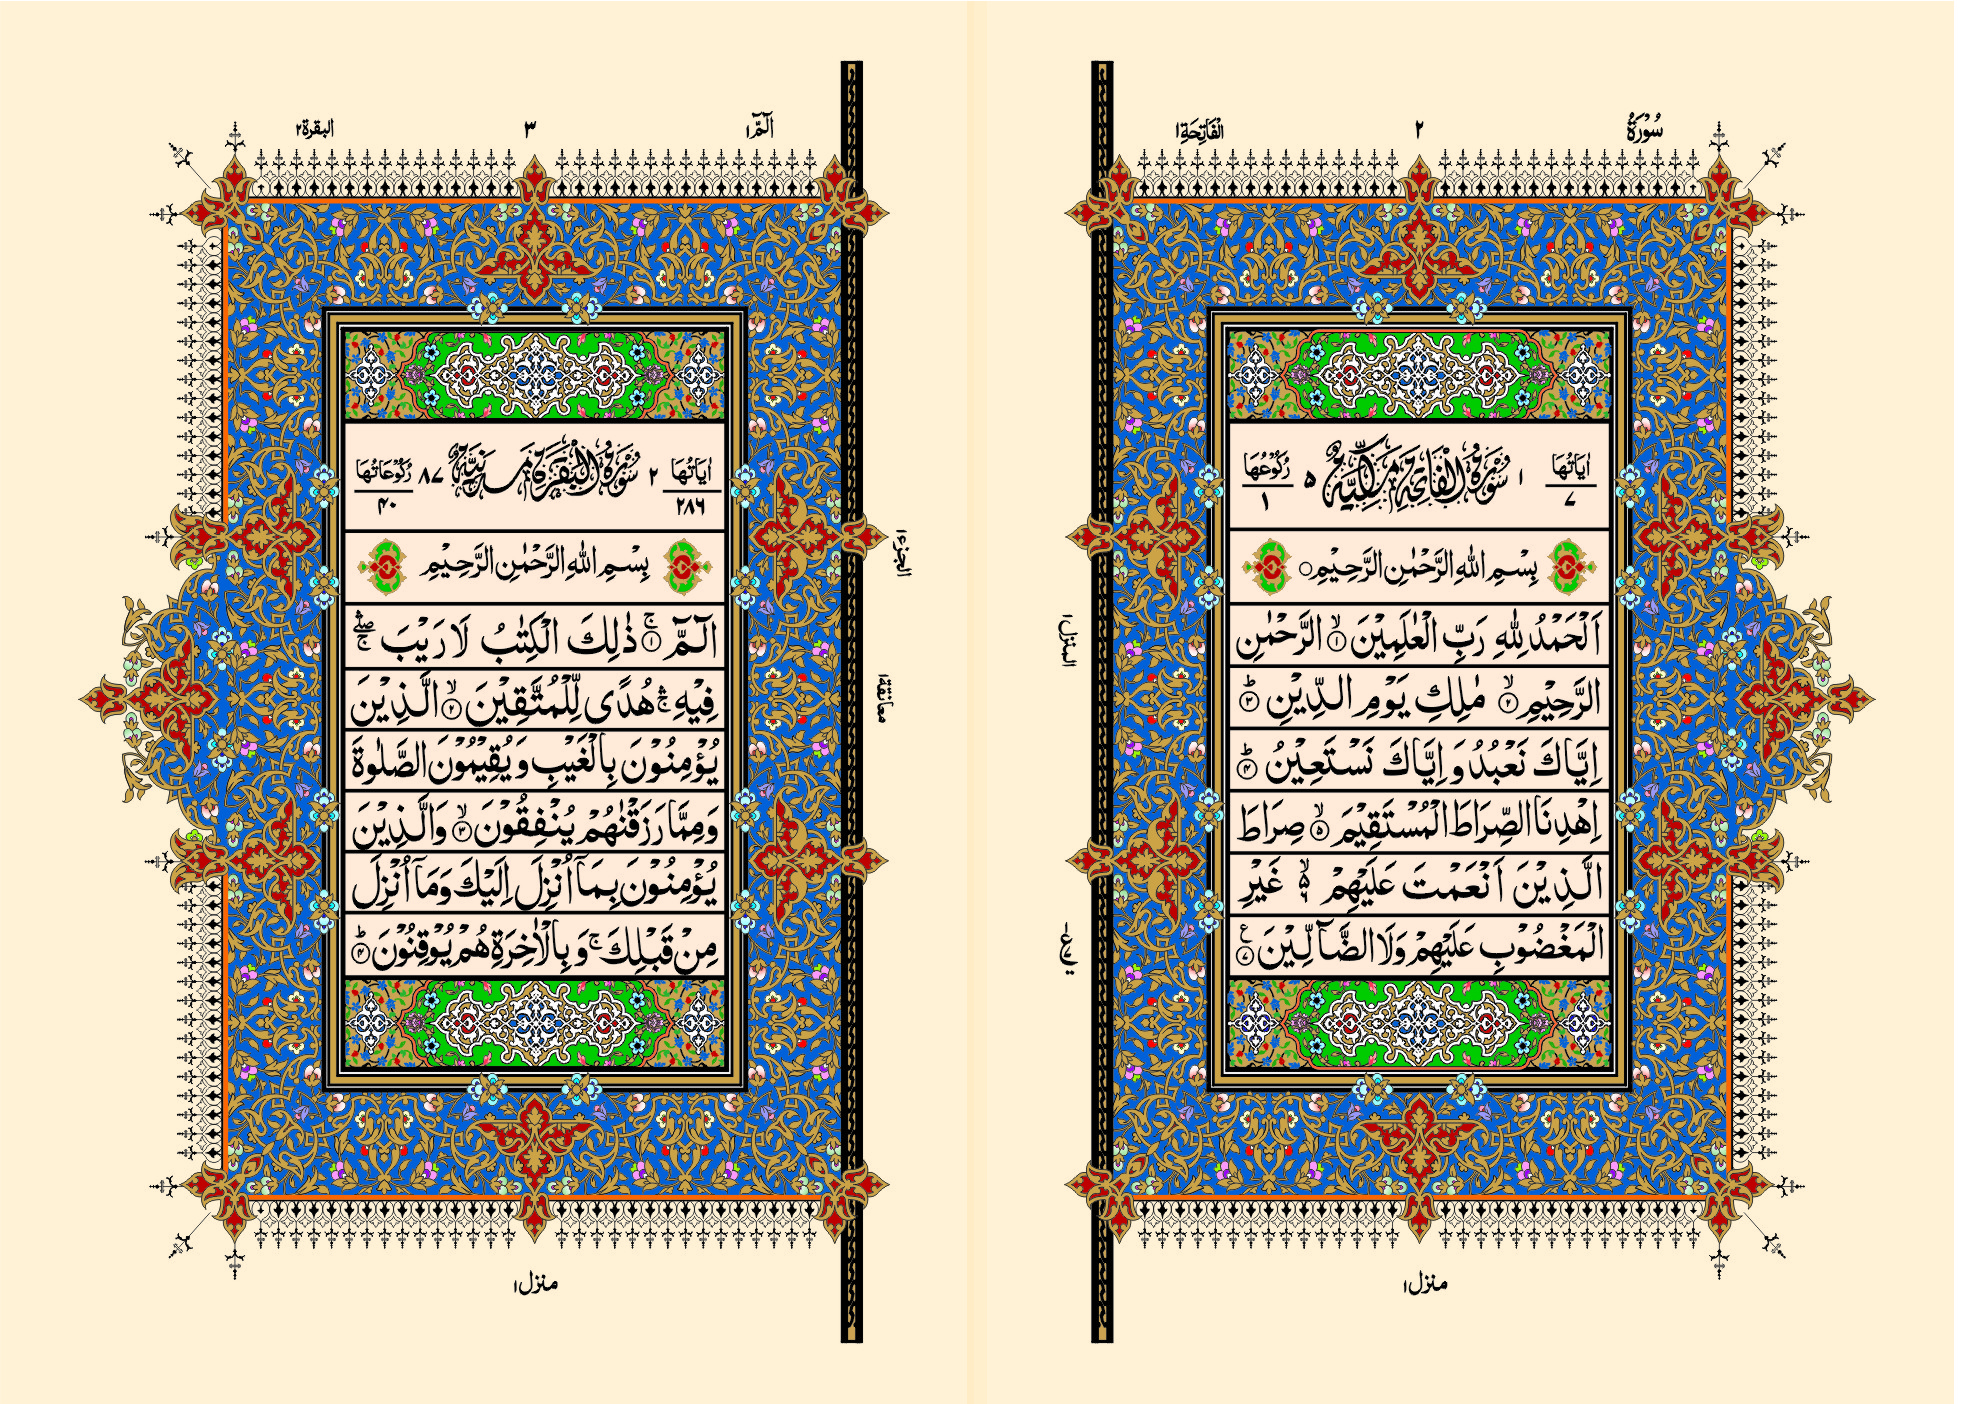 سُوْرَةُ
٢
اَلْفَاتِحَةِ١
اٰيَاتُهَا
٧
١
سُوْرَةُ الْفَاتِحَةِ مَكِّيَّةٌ
٥
رُكُوْعُهَا
١
بِسْمِ اللّٰهِ الرَّحْمٰنِ الرَّحِيْمِ○
اَلْحَمْدُ لِلّٰهِ رَبِّ الْعٰلَمِيْنَ ۙ﴿١﴾ الرَّحْمٰنِ
الرَّحِيْمِ ۙ﴿٢﴾ مٰلِكِ يَوْمِ الدِّيْنِ ؕ﴿٣﴾
اِيَّاكَ نَعْبُدُ وَ اِيَّاكَ نَسْتَعِيْنُ ؕ﴿٤﴾
اِهْدِنَا الصِّرَاطَ الْمُسْتَقِيْمَ ۙ﴿٥﴾ صِرَاطَ
الَّذِيْنَ اَنْعَمْتَ عَلَيْهِمْ ۙ۬ ٦ غَيْرِ
الْمَغْضُوْبِ عَلَيْهِمْ وَلَا الضَّآلِّيْنَ ﴿٧﴾ ع
المنزل١
منزل١
الٓمّٓ١
٣
البقرة٢
اٰيَاتُهَا
٢٨٦
٢
سُوْرَةُ الْبَقَرَةِ مَدَنِيَّةٌ
٨٧
رُكُوْعَاتُهَا
٤٠
بِسْمِ اللّٰهِ الرَّحْمٰنِ الرَّحِيْمِ
الٓمّٓ ۚ﴿١﴾ ذٰلِكَ الْكِتٰبُ لَا رَيْبَ ۖۛۚ
فِيْهِ ۛۚ هُدًى لِّلْمُتَّقِيْنَ ۙ﴿٢﴾ الَّذِيْنَ
يُؤْمِنُوْنَ بِالْغَيْبِ وَ يُقِيْمُوْنَ الصَّلٰوةَ
وَمِمَّا رَزَقْنٰهُمْ يُنْفِقُوْنَ ۙ﴿٣﴾ وَالَّذِيْنَ
يُؤْمِنُوْنَ بِمَاۤ اُنْزِلَ اِلَيْكَ وَمَاۤ اُنْزِلَ
مِنْ قَبْلِكَ ۚ وَ بِالْاٰخِرَةِ هُمْ يُوْقِنُوْنَ ؕ﴿٤﴾
الجزء١
معانقة١
منزل١